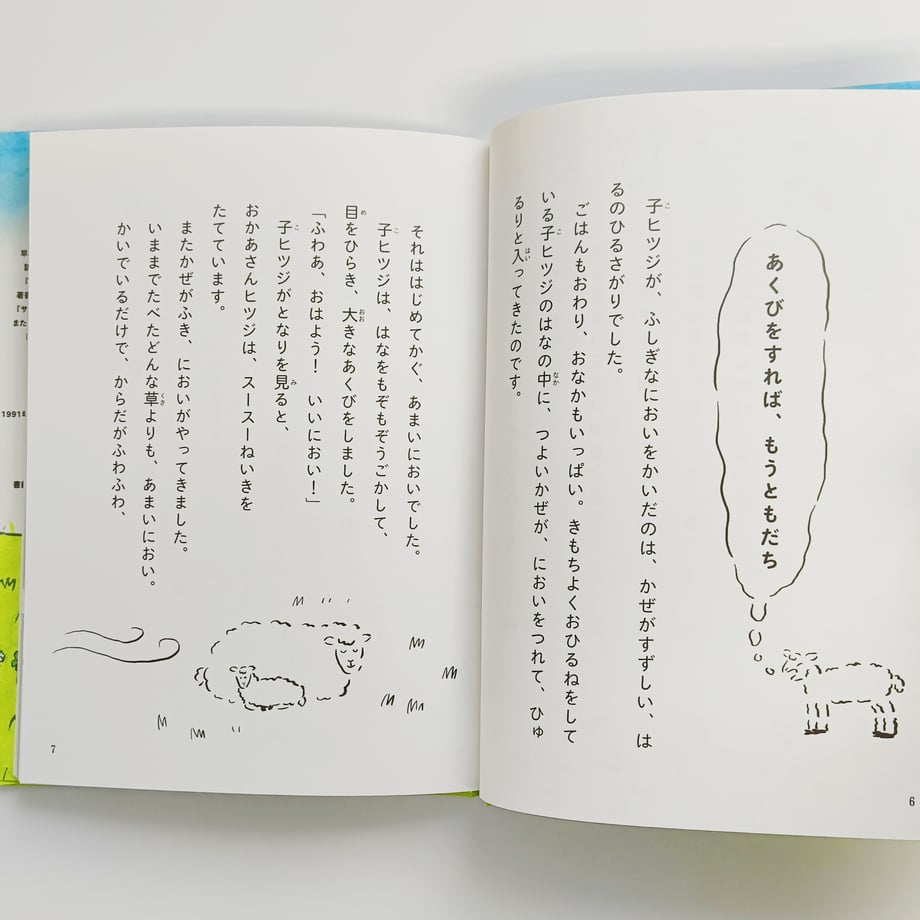 あくびをすれば、もうともだち
子ヒツジが、ふしぎなにおいをかいだのは、かぜがすずしい、は
るのひるさがりでした。
ごはんもおわり、おなかもいっぱい。きもちよくおひるねをして
いる子ヒツジのはなの中に、つよいかぜが、においをつれて、ひゅ
るりと入ってきたのです。
6
それははじめてかぐ、あまいにおいでした。
子ヒツジは、はなをもぞもぞうごかして、
目をひらき、大きなあくびをしました。
「ふわあ、おはよう！　いいにおい！」
子ヒツジがとなりを見ると、
おかあさんヒツジは、スースーねいきを
たてています。
またかぜがふき、においがやってきました。
いままでたべたどんな草よりも、あまいにおい。
かいでいるだけで、からだがふわふわ、
7
1991年